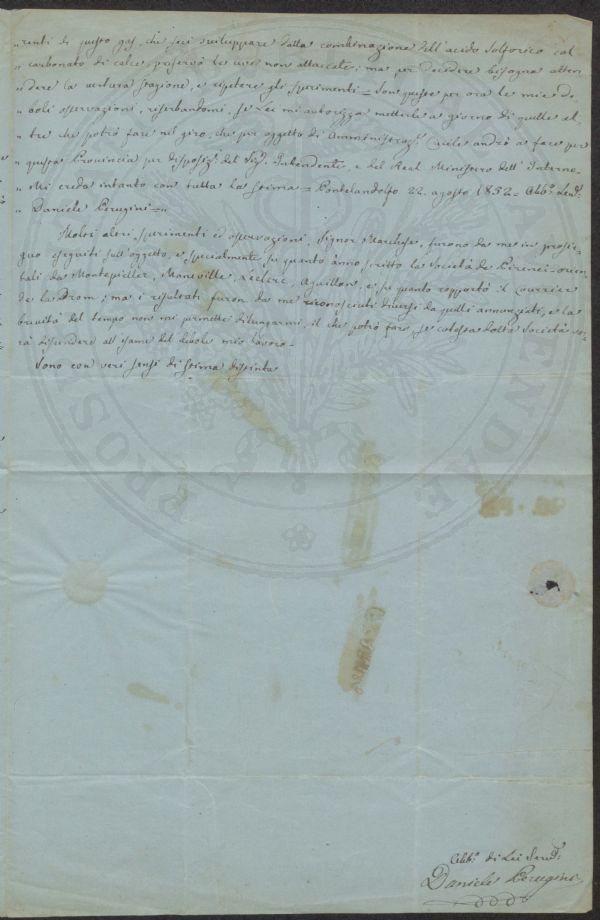 "renti di questo gas, che feci sviluppare dalla combinazione dell'acido Solforico col
"carbonato di calce, preservò le uve non attaccate; ma per decidere bisogna atten
"dere la ventura stagione, e ripetere gli sperimenti = Son queste per ora le mie de
"boli osservazioni, riserbandomi, se Lei mi autorizza metterla a giorno di quelle al
"tre che potrò fare nel giro, che per oggetto di Amministraz.e Civile andrò a fare per
"questa Provincia per disposiz.e del Sig.r Intendente, e del Real Ministero dell'Interno.
"Mi creda intanto con tutta la stima = Pontelandolfo 22. agosto 1852 = Obb.o Serv.e
"Daniele Perugini = "
Molti altri sperimenti ed osservazioni, Signor Marchese, furono da me in prosie
guo eseguiti sull'oggetto, e specialmente su quanto ànno scritto la Società de' Pirenei-orien
tali da Montepellier, Manseville, Leclerc, Aguillon, e su quanto rapportò il Courrier
de la Drom; ma i risultati furon da me riconosciuti diversi da quelli annunziati, e la
brevità del tempo non mi permette dilungarmi, il che potrò fare se cotesta dotta Società vor
rà discendere all'esame del debole mio lavoro =
Sono con veri sensi di stima distinta
Obb.o di Lei Serv.e
Daniele Perugini
PROSPERITATI
AUGENDAE